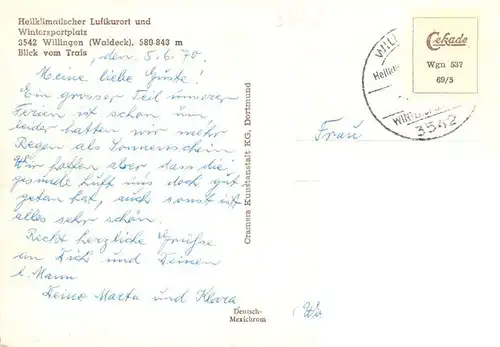 Heilklimatischer Luftkurort und
Wintersportplatz
3542 Willingen (Waldeck), 580-843 m
Blick vom Trais
, den 5.6.70.
Meine liebe Guste!
Ein grosser Teil unserer
Ferien ist schon um
leider hatten wir mehr
Regen als Sonnenschein
Wir hoffen aber dass die
gesunde Luft uns doch gut
getan hat, auch sonst ist
alles sehr schön.
Recht herzliche Grüsse
an Dich und Deinen
l. Mann
Deine Marta und Klara
Cramers Kunstanstalt KG, Dortmund
Deutsch-
Mexichrom
Cekade
Wgn 537
69/5
WILL
Heilkl
WINTERS
3542
Frau